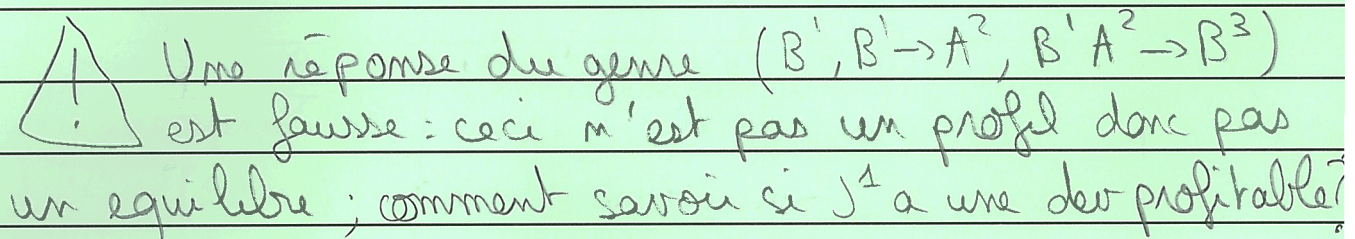 ! Une réponse du genre (B¹, B¹→A², B¹A²→B³)
est fausse : ceci n'est pas un profil donc pas
un equilibre ; comment savoir si J¹ a une dev profitable?